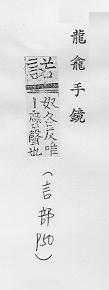 龍龕手鏡
諾
奴各反唯
卜應聲也
(言部
P50)